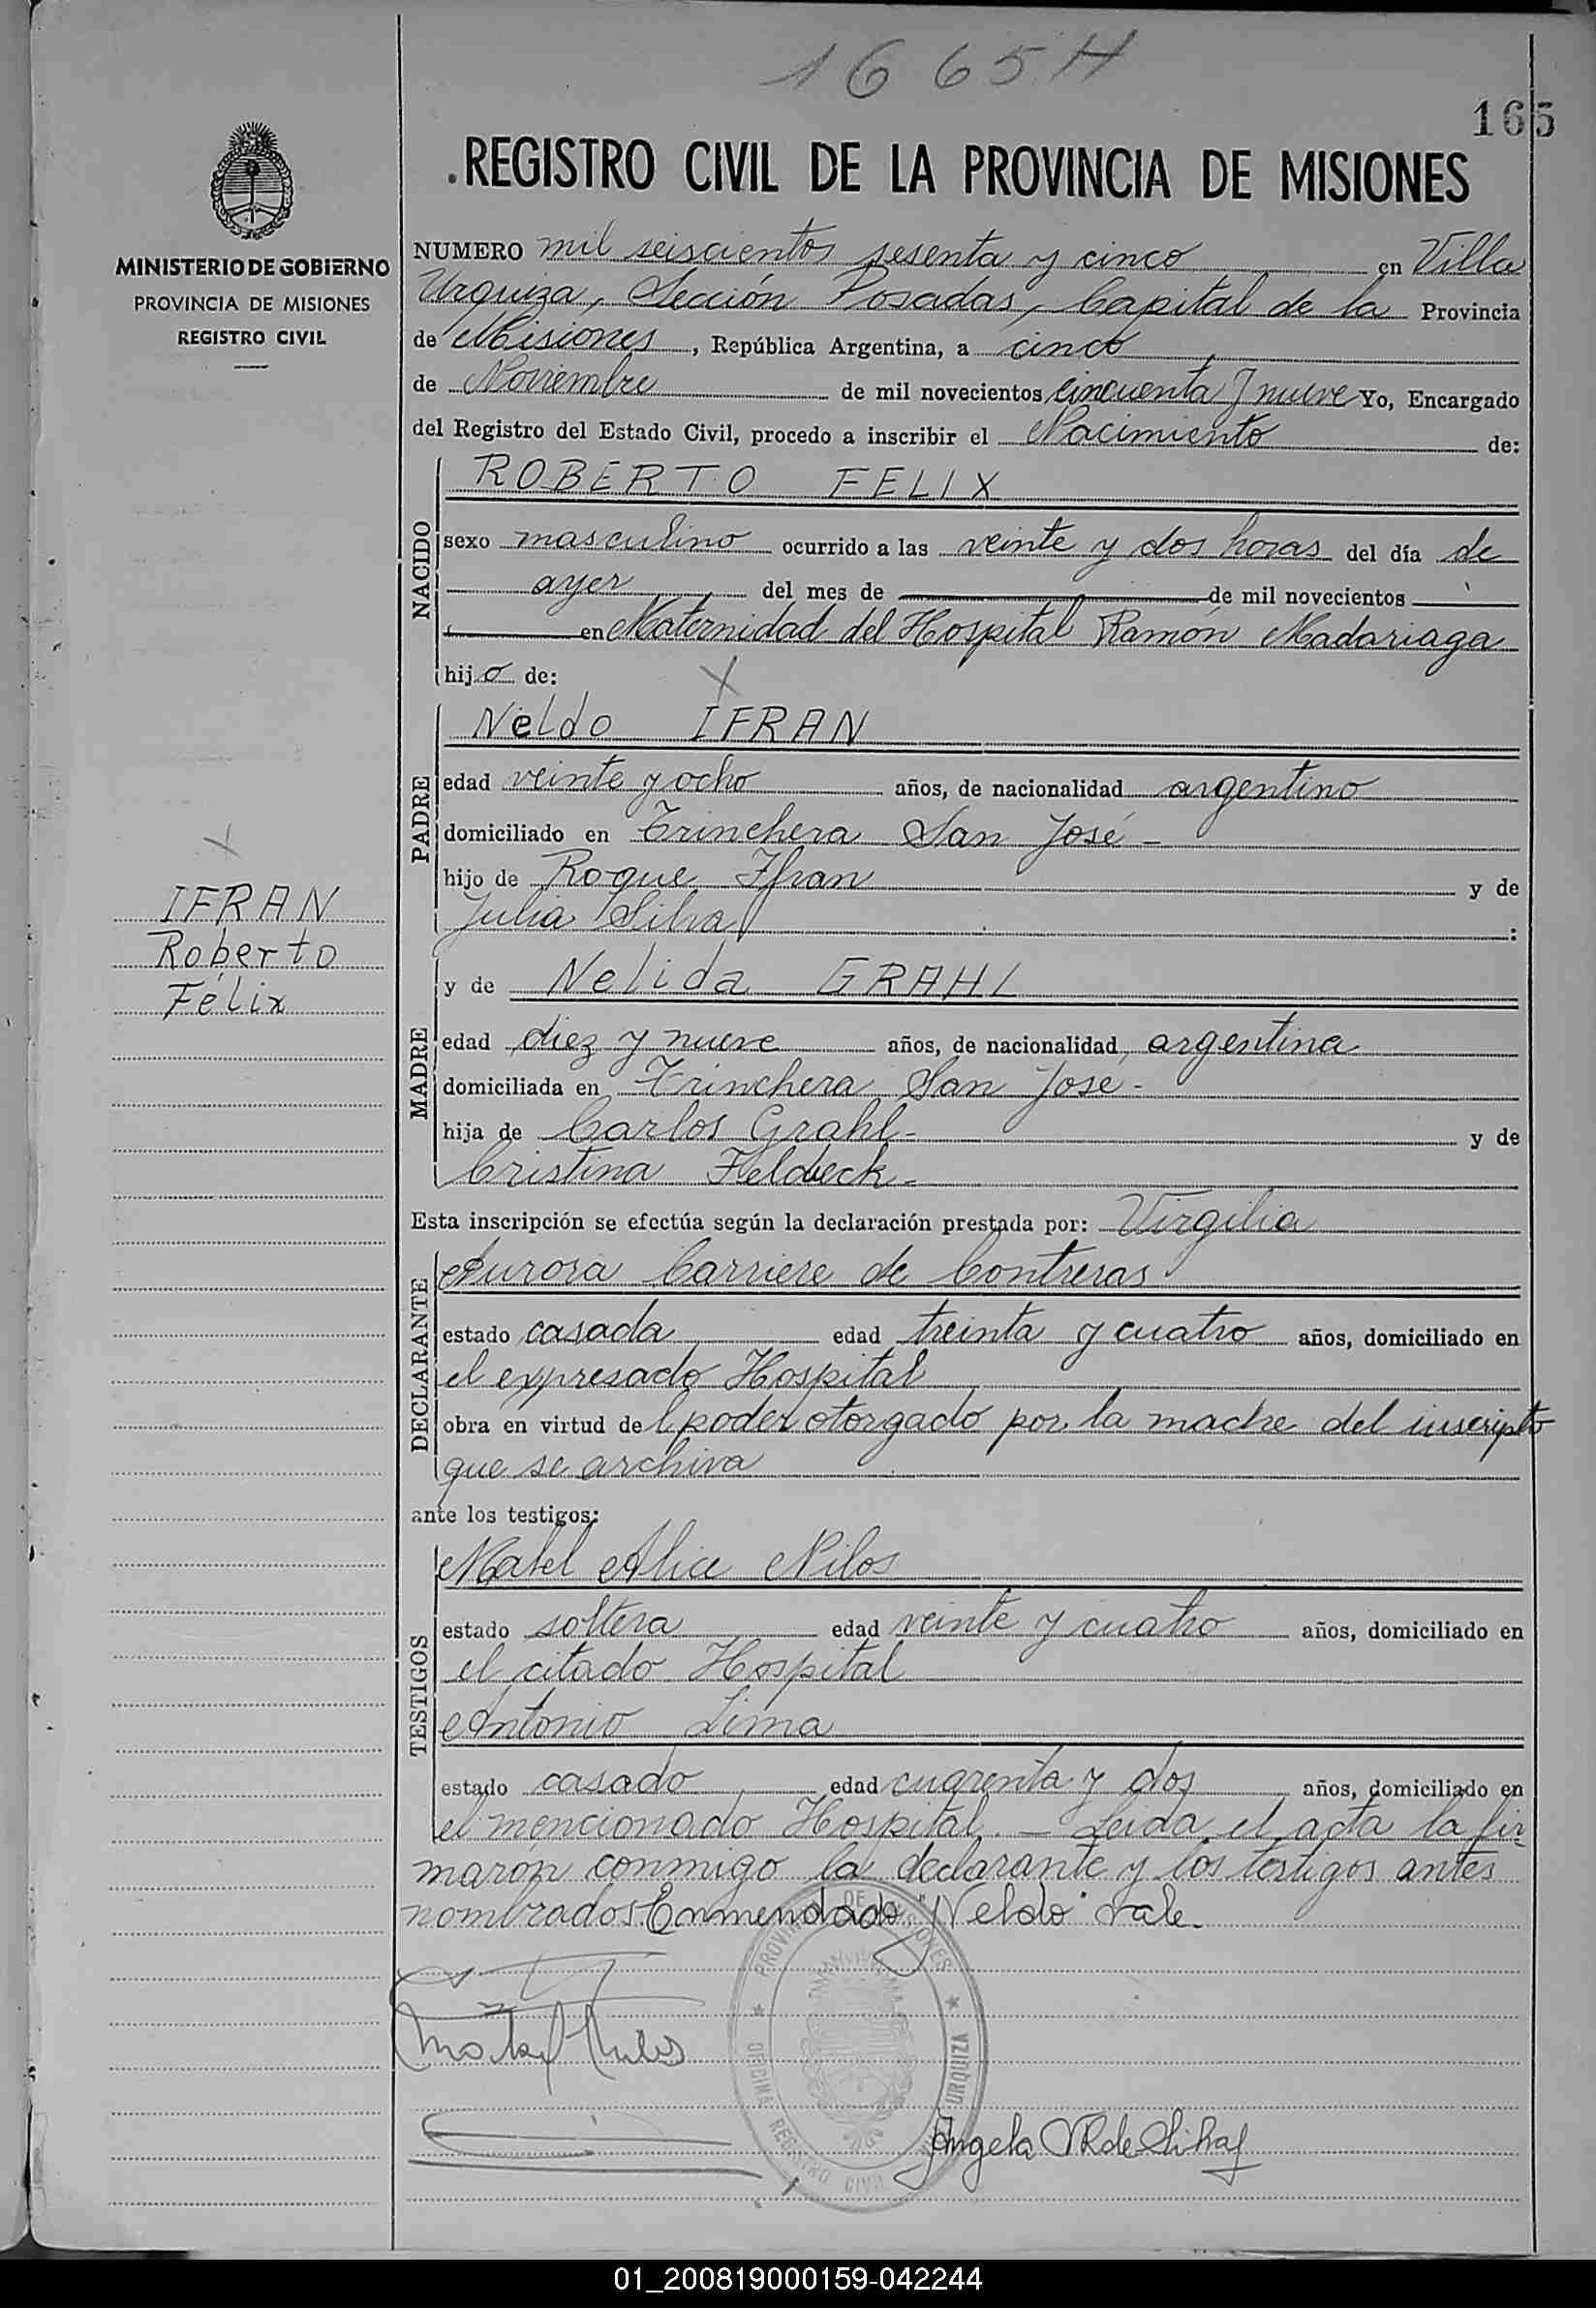 1665H
165
REGISTRO CIVIL DE LA PROVINCIA DE MISIONES
MINISTERIO DE GOBIERNO
PROVINCIA DE MISIONES
REGISTRO CIVIL
NUMERO mil seiscientos sesenta y cinco en Villa
Urquiza, Sección Posadas, Capital de la Provincia
de Misiones, República Argentina, a cinco
de Noviembre de mil novecientos cincuenta y nueve Yo, Encargado
del Registro del Estado Civil, procedo a inscribir el Nacimiento de:
NACIDO
ROBERTO FELIX
sexo masculino ocurrido a las veinte y dos horas del día de
ayer del mes de de mil novecientos
en Maternidad del Hospital Ramón Madariaga
hijo de:
PADRE
Neldo IFRAN
edad veinte y ocho años, de nacionalidad argentino
domiciliado en Trinchera San José -
hijo de Roque Ifran y de
Julia Silva :
IFRAN
Roberto
Félix
MADRE
y de Nelida GRAHL
edad diez y nueve años, de nacionalidad argentina
domiciliada en Trinchera San José -
hija de Carlos Grahl - y de
Cristina Feldbeck -
Esta inscripción se efectúa según la declaración prestada por: Virgilia
DECLARANTE
Aurora Carriere de Contreras
estado casada edad treinta y cuatro años, domiciliado en
el expresado Hospital
obra en virtud del poder otorgado por la madre del inscripto
que se archiva
ante los testigos:
TESTIGOS
Mabel Alice Nilos
estado soltera edad veinte y cuatro años, domiciliado en
el citado Hospital
Antonio Lima
estado casado edad cuarenta y dos años, domiciliado en
el mencionado Hospital. - Leida el acta la fir
maron conmigo la declarante y los testigos antes
nombrados. Enmendado "Neldo" vale.
PROVINCIA DE MISIONES
OFICINA REGISTRO CIVIL
URQUIZA
Angela
01_200819000159-042244